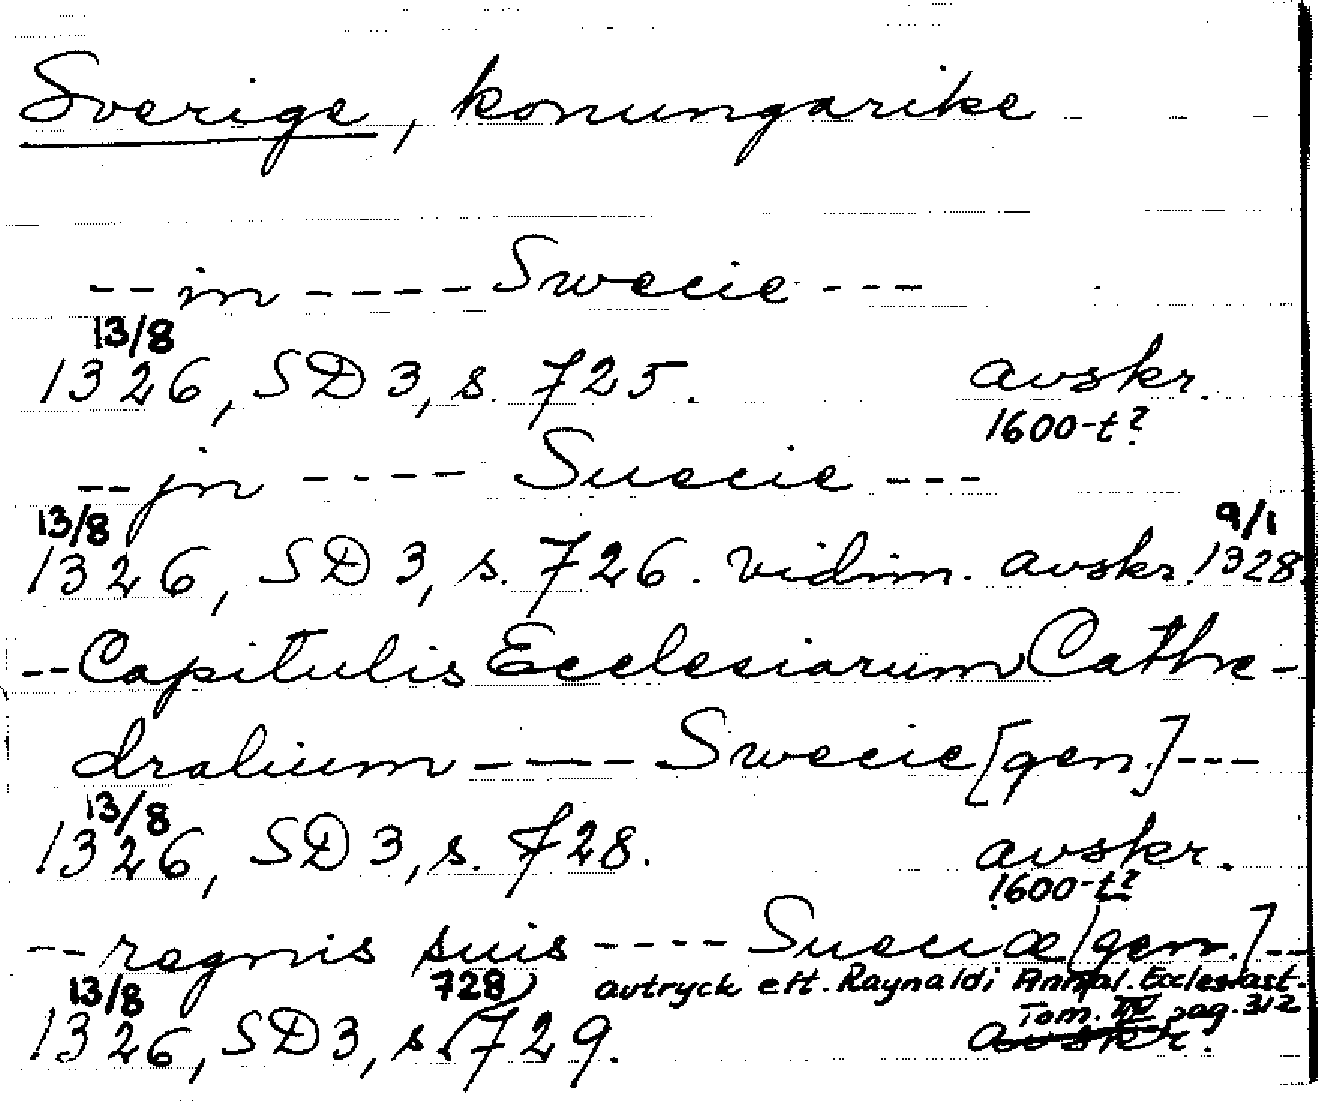 Sverige, konungarike
-- in ----- Swecie ---
13/8
1326, SD 3, s. 725. avskr.
1600-t?
-- jn ---- Suecie ---
13/8 9/1
1326, SD 3, s. 726. vidim. avskr. 1328.
-- Capitulis Ecclesiarum Cathe-
dralium ---- Swecie [gen.] ---
13/8
1326, SD 3, s. 728. avskr.
1600-t?
-- regnis suis ---- Sueciæ [gen.] --
13/8 728) avtryck eft. Raynaldi Annal. Ecclesiast.
Tom. IV pag. 312
1326, SD 3, s. (729. avskr.